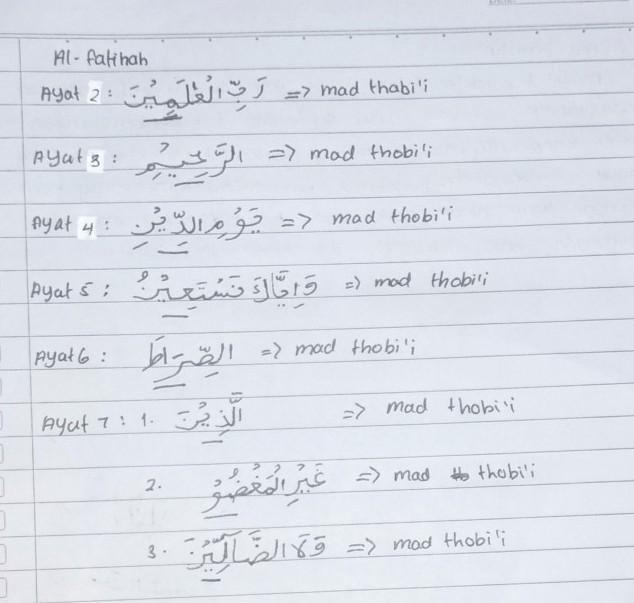 Al-fatihah
Ayat 2 : رَبِّ الْعٰلَمِيْنَ => mad thabi'i
Ayat 3 : الرَّحِيْمِ => mad thobi'i
Ayat 4 : يَوْمِ الدِّيْنِ => mad thobi'i
Ayat 5 : وَاِيَّاكَ نَسْتَعِيْنُ => mad thobi'i
Ayat 6 : الصِّرَاطَ => mad thobi'i
Ayat 7 : 1. الَّذِيْنَ => mad thobi'i
2. غَيْرِ الْمَغْضُوْ => mad thobi'i
3. وَلَا الضَّآلِّيْنَ => mad thobi'i